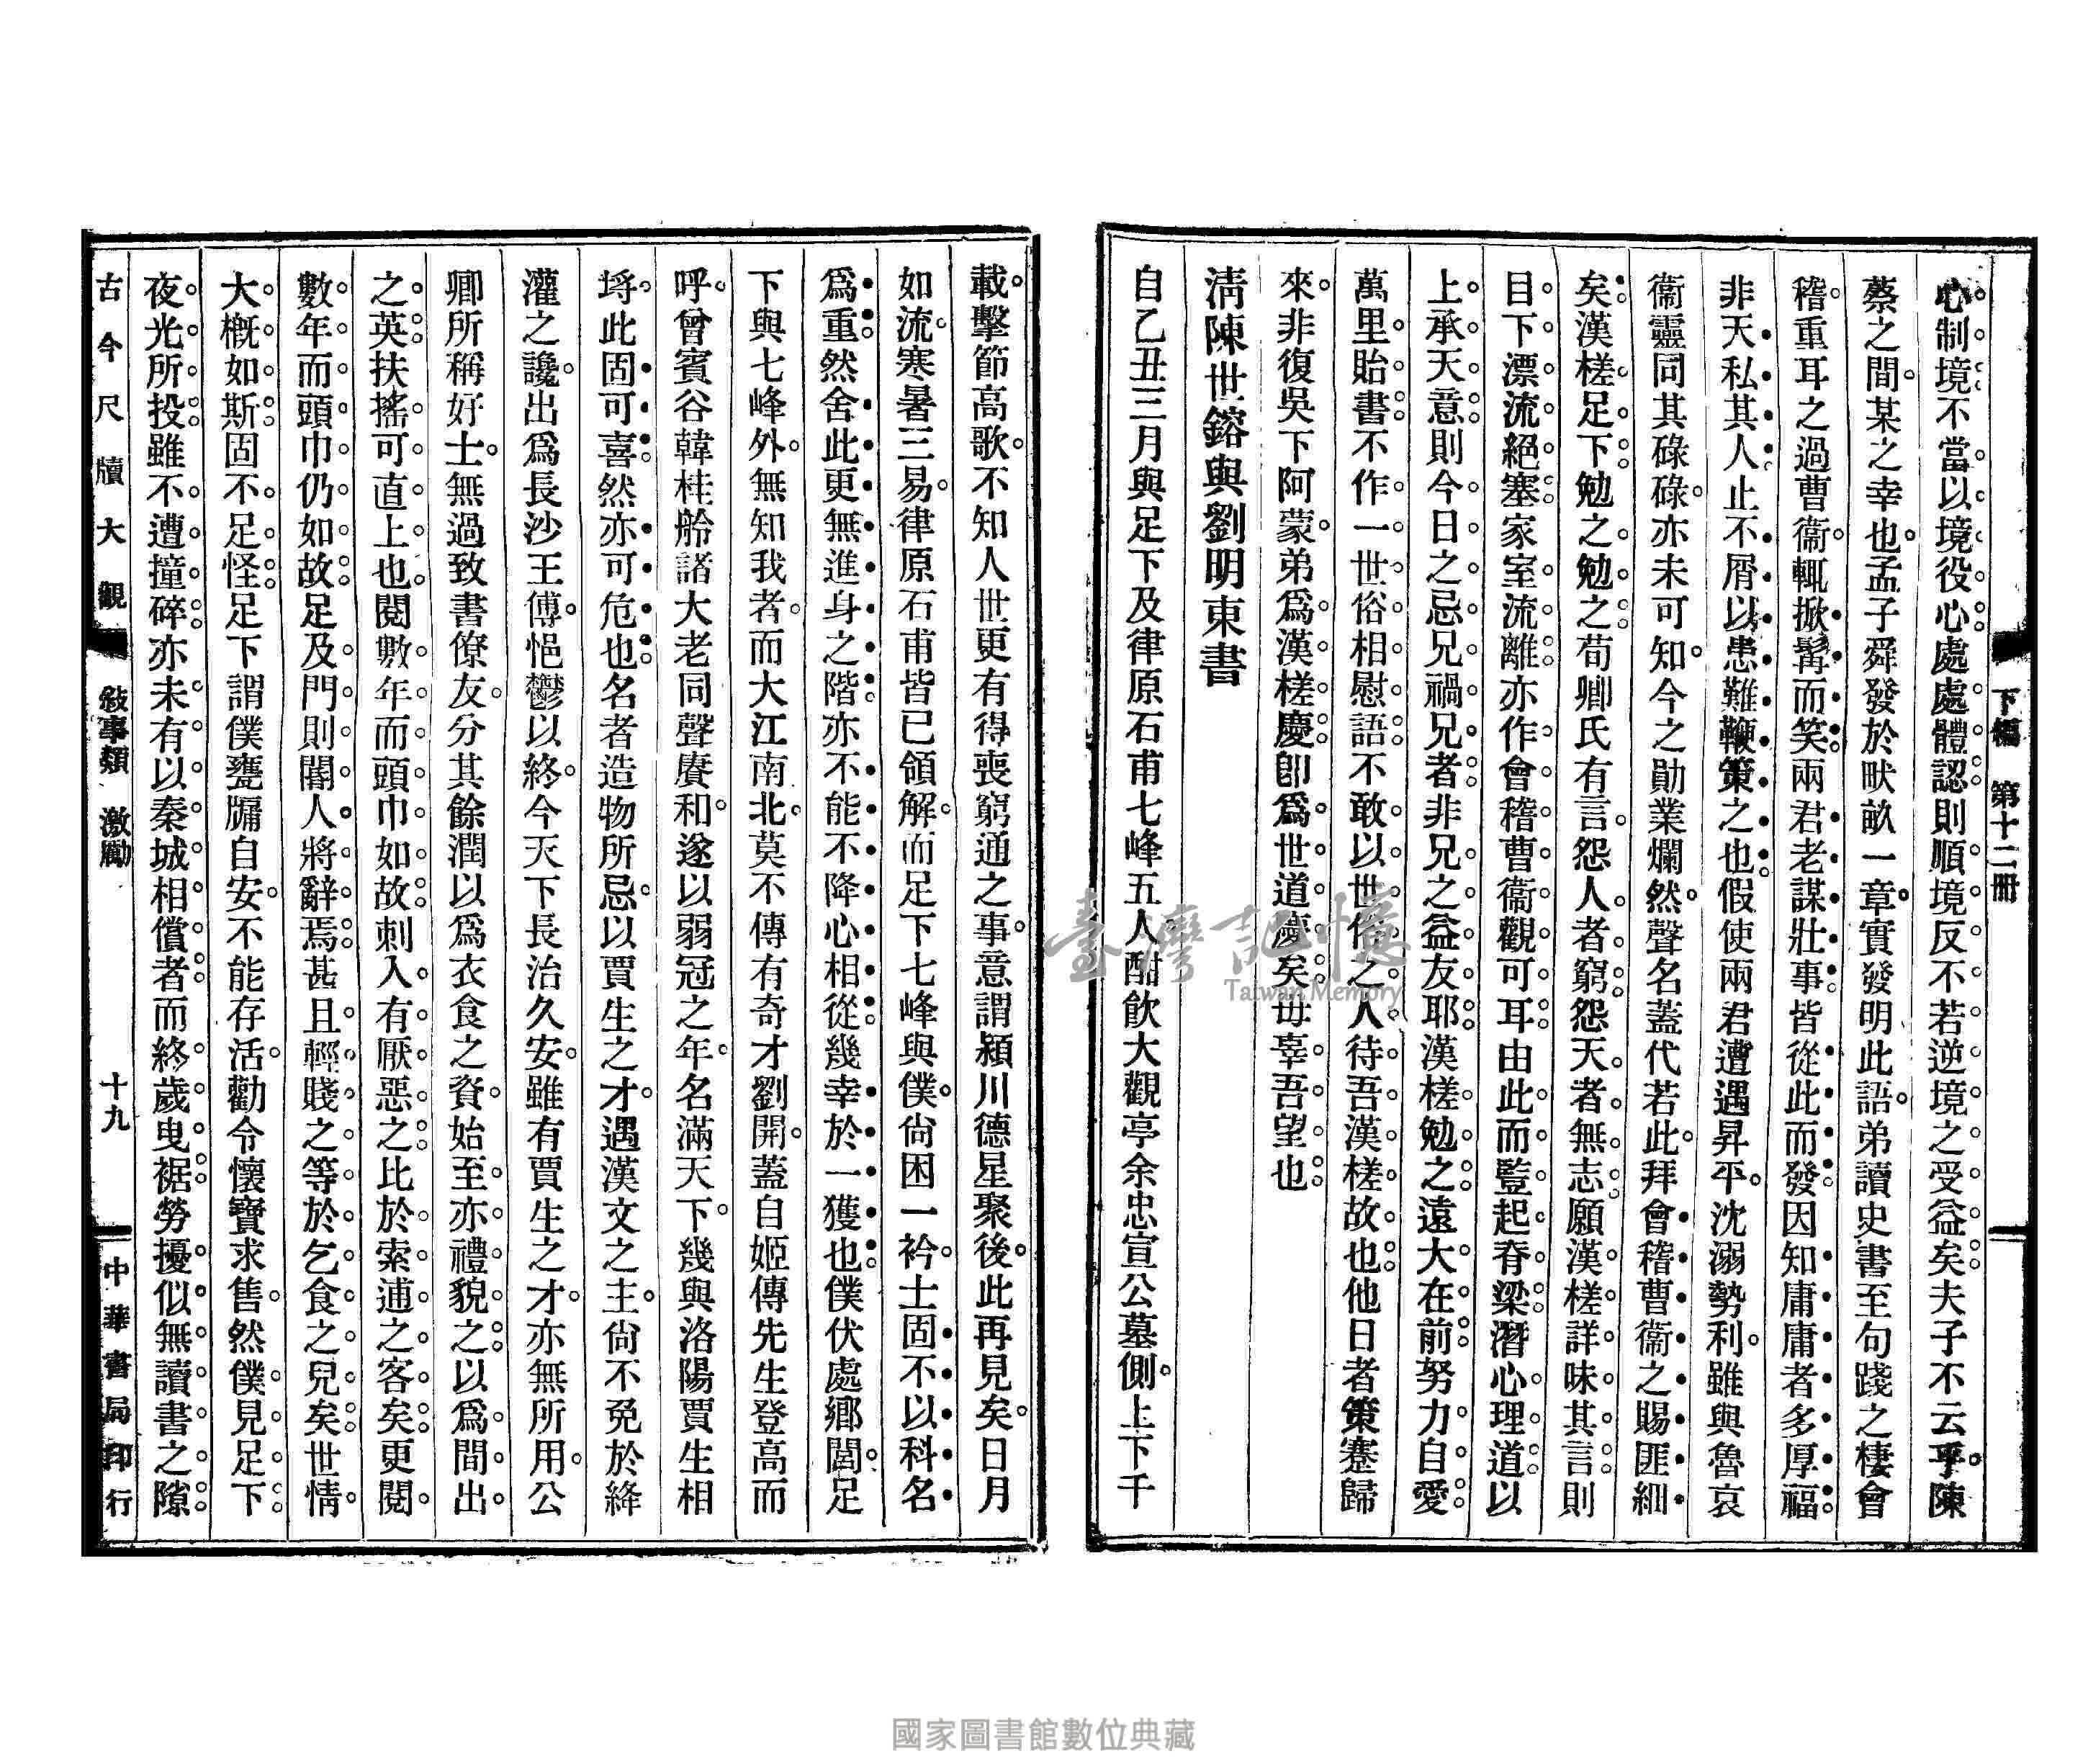 下編　第十二冊
心制境。不當以境役心。處處體認。則順境反不若逆境之受益矣。夫子不云乎。陳
蔡之間。某之幸也。孟子舜發於畎畝一章。實發明此語。弟讀史書至句踐之棲會
稽。重耳之過曹衞。輒掀髯而笑。兩君老謀壯事。皆從此而發。因知庸庸者多厚福。
非天私其人。止不屑以患難鞭策之也。假使兩君遭遇昇平。沈溺勢利。雖與魯哀
衞靈同其碌碌。亦未可知。今之勛業爛然。聲名蓋代若此。拜會稽曹衞之賜匪細
矣。漢槎足下。勉之勉之。荀卿氏有言。怨人者窮。怨天者無志。願漢槎詳味其言。則
目下漂流絕塞。家室流離。亦作會稽曹衞觀可耳。由此而豎起脊梁。潛心理道。以
上承天意。則今日之忌兄禍兄者。非兄之益友耶。漢槎勉之。遠大在前。努力自愛。
萬里貽書。不作一世俗相慰語。不敢以世俗之人待吾漢槎故也。他日者策蹇歸
來。非復吳下阿蒙。弟爲漢槎慶。卽爲世道慶矣。毋辜吾望也。
淸陳世鎔與劉明東書
自乙丑三月與足下及律原石甫七峰五人。酣飮大觀亭余忠宣公墓側。上下千
載。擊節高歌。不知人世更有得喪窮通之事。意謂潁川德星聚後。此再見矣。日月
如流。寒暑三易。律原石甫皆已領解。而足下七峰與僕。尙困一衿。士固不以科名
爲重。然舍此更無進身之階。亦不能不降心相從。幾幸於一獲也。僕伏處鄕閭。足
下與七峰外。無知我者。而大江南北。莫不傳有奇才劉開。蓋自姬傳先生登高而
呼。曾賓谷韓桂舲諸大老同聲賡和。遂以弱冠之年。名滿天下。幾與洛陽賈生相
埒。此固可喜。然亦可危也。名者造物所忌。以賈生之才。遇漢文之主。尙不免於絳
灌之讒。出爲長沙王傅。悒鬱以終。今天下長治久安。雖有賈生之才。亦無所用。公
卿所稱好士。無過致書僚友。分其餘潤。以爲衣食之資。始至亦禮貌之。以爲間出
之英。扶搖可直上也。閱數年而頭巾如故。刺入有厭惡之。比於索逋之客矣。更閱
數年而頭巾仍如故。足及門則閽人將辭焉。甚且輕賤之等於乞食之兒矣。世情
大槪如斯。固不足怪。足下謂僕甕牖自安。不能存活。勸令懷寶求售。然僕見足下
夜光所投。雖不遭撞碎。亦未有以秦城相償者。而終歲曳裾勞擾。似無讀書之隙。
古今尺牘大觀　敍事類　激勵　十九　中華書局印行
臺灣記憶
Taiwan Memory
國家圖書館數位典藏